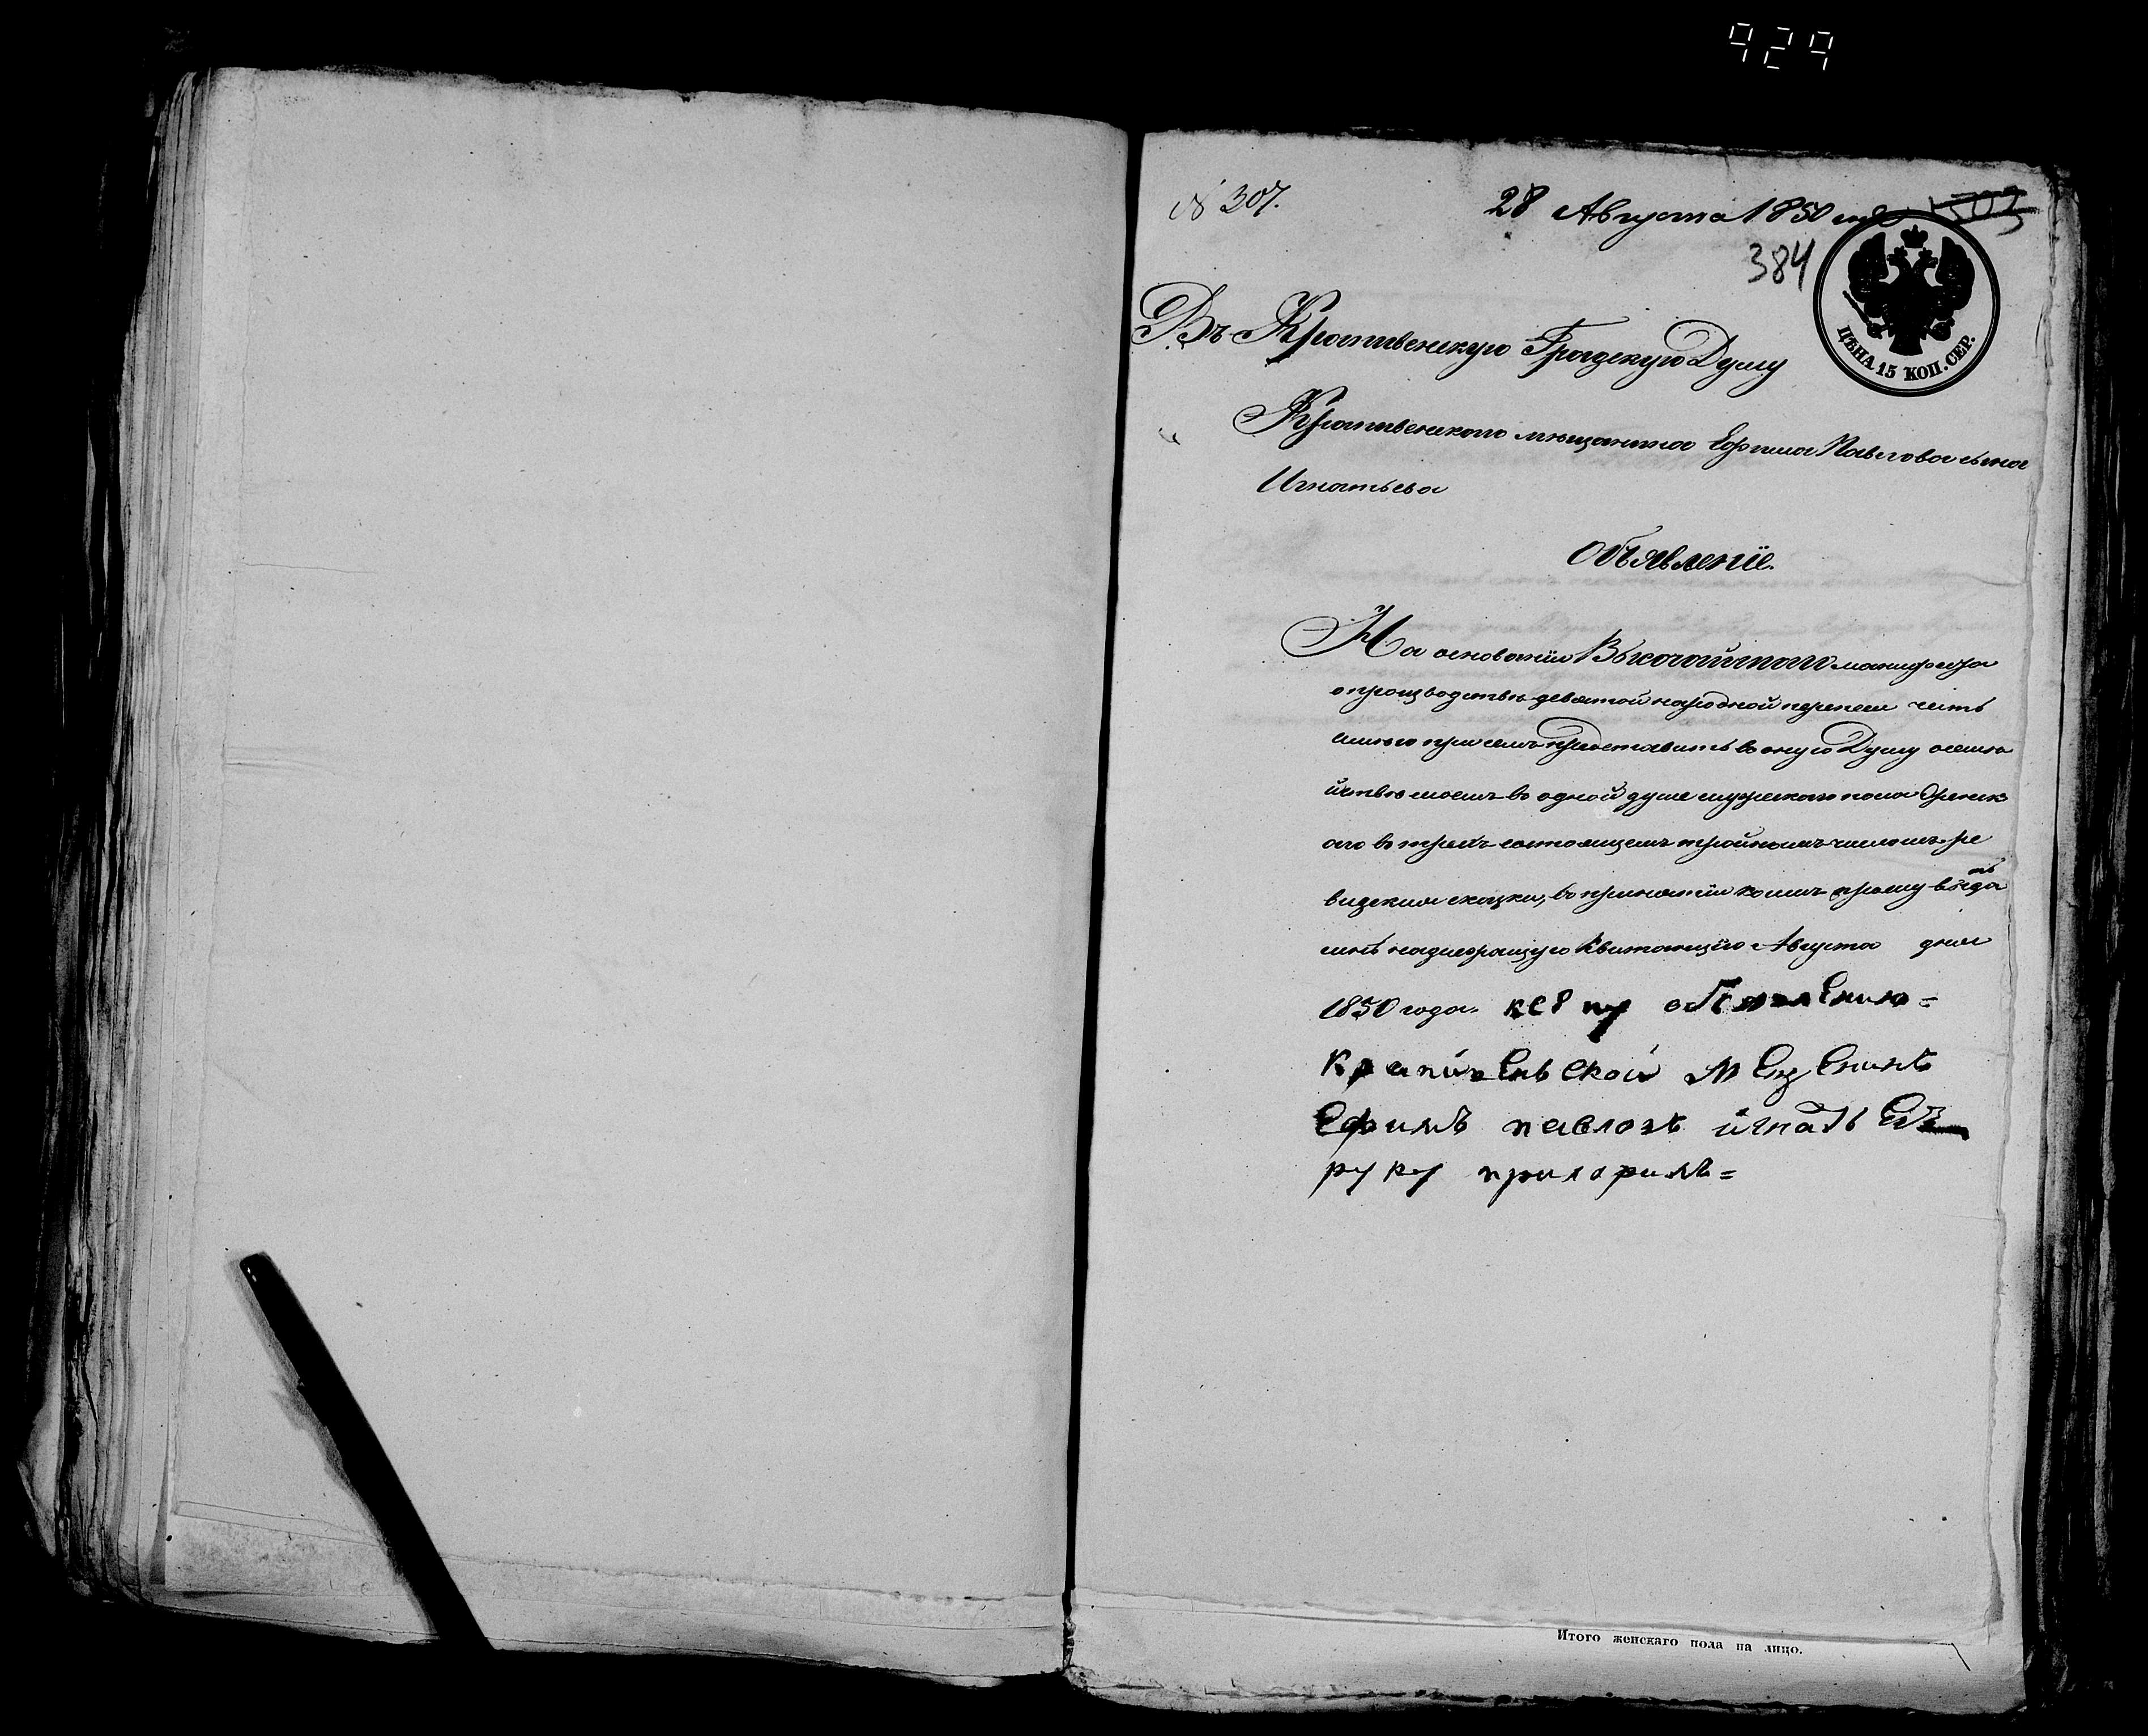 929
№ 307.
28 Августа 1850 года 1503
384
ЦѢНА 15 КОП. СЕР.
Въ Крапивенскую Градскую Думу
Крапивенскаго мѣщанина Ефима Павлова сына
Игнатьева
Объявленіе.
На основаніи Высочайшаго манифеста
о производствѣ девятой народной переписи честь
имѣю при семъ представить во оную Думу о семѣ
йствѣ моемъ во одной душе мужескаго пола женск
аго во трехъ состоящемъ тройномъ числомъ ре
визския сказки, во принятіи коихъ прошу выдать
мнѣ надлежащую квитанцію Августа дня
1850 года. кс ему обявлению=
крапивенской мещенинъ
Ефимъ павловъ игнатьевъ
руку приложилъ=
Итого женскаго пола на лицо.